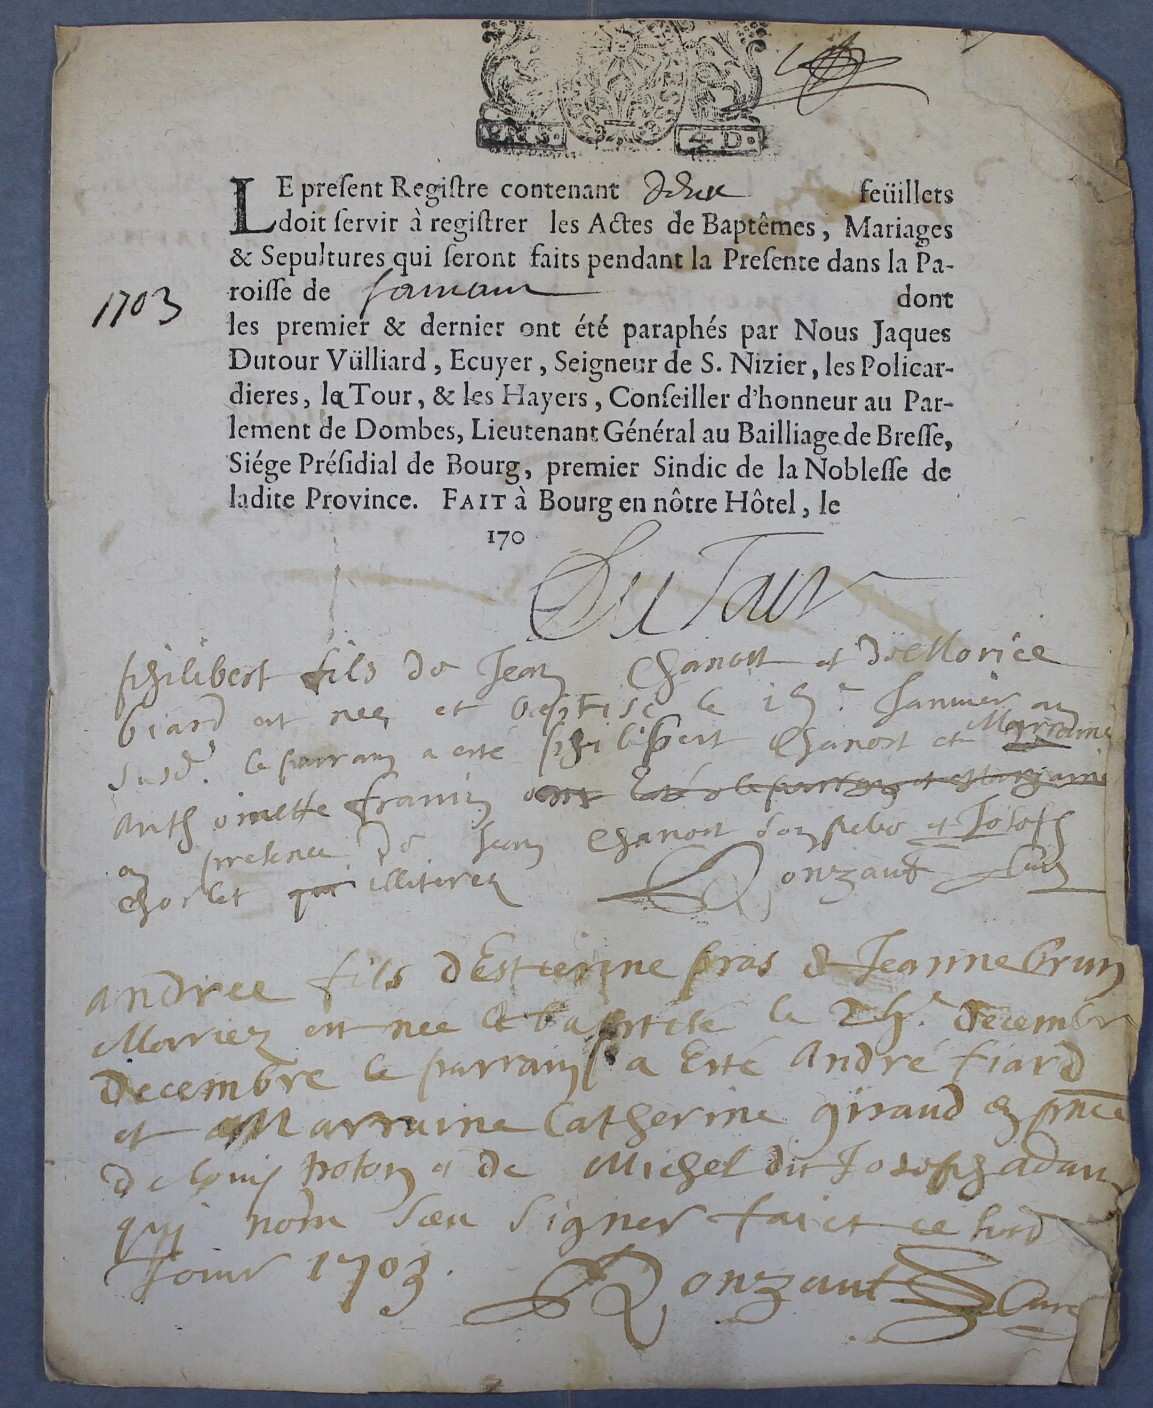 4 D.
LE preſent Regiſtre contenant deux feüillets
doit ſervir à regiſtrer les Actes de Baptêmes, Mariages
& Sepultures qui ſeront faits pendant la Preſente dans la Pa-
1703
roiſſe de dont
les premier & dernier ont été paraphés par Nous Jaques
Dutour Vülliard, Ecuyer, Seigneur de S. Nizier, les Policar-
dieres, la Tour, & les Hayers, Conſeiller d'honneur au Par-
lement de Dombes, Lieutenant Général au Bailliage de Breſſe,
Siége Préſidial de Bourg, premier Sindic de la Nobleſſe de
ladite Province. FAIT à Bourg en nôtre Hôtel, le
170
DuTour
philibert fils de Jean Chanost et de Morice
biard est nee et baptise le Janvier an
susd. le parrain a esté philibert Chanost et Marraine
Anthoinette
en presence de Jean Chanost et Joseph
chorlet illiterez Ronzaut Curé
andree fils dEstienne pras & Jeanne brun
Mariez est née & baptisé le decembre
decembre le parrain a Esté André fiard
et Marraine Catherine giraud en pnce
de Louis et de Michel dit Joseph adam
qui nont sceu signer faict ce susd
Jour 1703. Ronzaut Curé